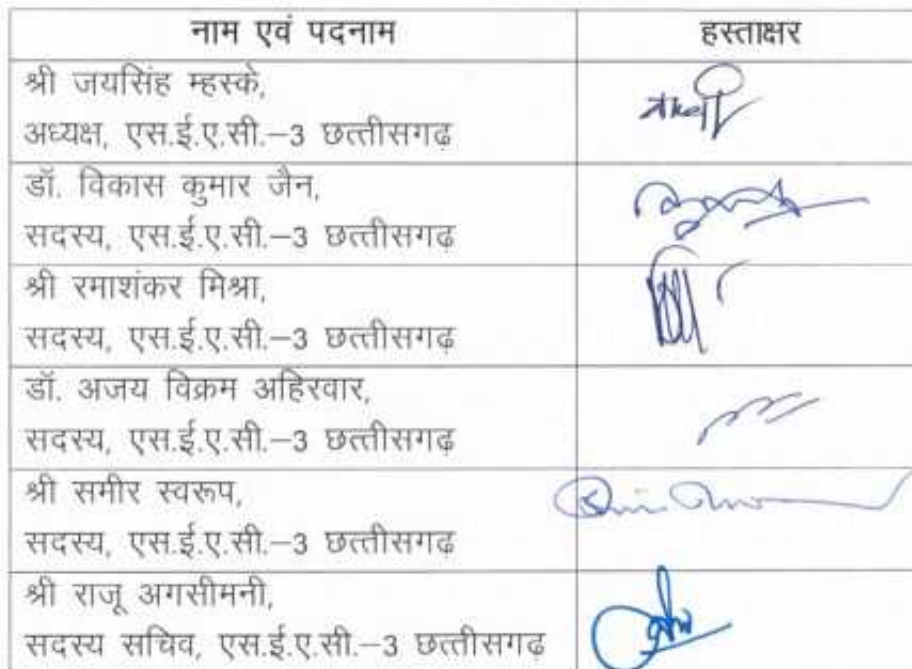 नाम एवं पदनाम
हस्ताक्षर
श्री जयसिंह म्हस्के,
अध्यक्ष, एस.ई.ए.सी.–3 छत्तीसगढ़
डॉ. विकास कुमार जैन,
सदस्य, एस.ई.ए.सी.–3 छत्तीसगढ़
श्री रमाशंकर मिश्रा,
सदस्य, एस.ई.ए.सी.–3 छत्तीसगढ़
डॉ. अजय विक्रम अहिरवार,
सदस्य, एस.ई.ए.सी.–3 छत्तीसगढ़
श्री समीर स्वरूप,
सदस्य, एस.ई.ए.सी.–3 छत्तीसगढ़
श्री राजू अगसीमनी,
सदस्य सचिव, एस.ई.ए.सी.–3 छत्तीसगढ़